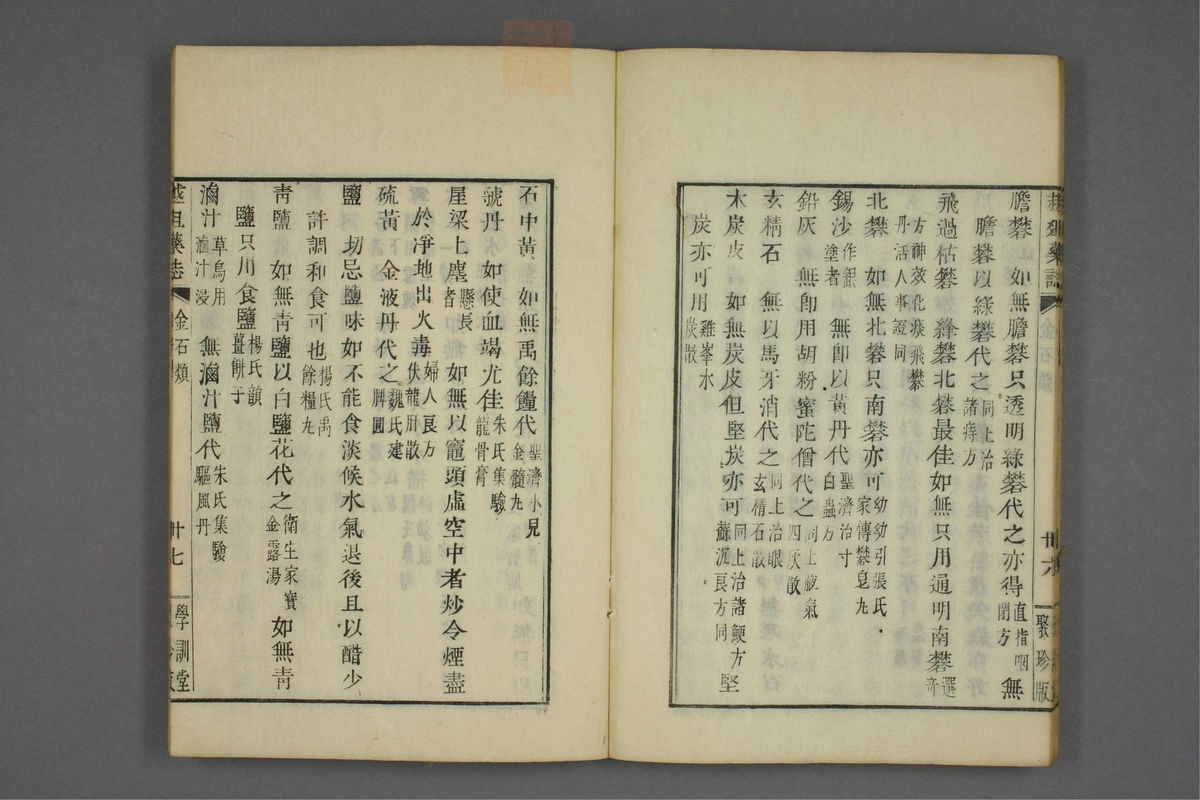 膽礬　如無膽礬只透明綠礬代之亦得直指咽閉方無
膽礬以綠礬代之同上治諸痔方
飛過枯礬　絳礬北礬最佳如無只用通明南礬選奇
方神效化痰飛礬丹活人事證同
北礬　如無北礬只南礬亦可幼幼引張氏家傳礬皂丸
錫沙作銀塗者　無卽以黃丹代聖濟治寸白蟲方
鉛灰　無卽用胡粉蜜陀僧代之同上瘦氣四灰散
玄精石　無以馬牙消代之同上治眼玄精石散
木炭皮　如無炭皮但堅炭亦可同上治諸鯁方蘇沉良方同堅
炭亦可用雞峯水炭散
金石類
聚珍版
石中黃　如無禹餘糧代聖濟小兒金髓丸
號丹　如使血竭尤佳朱氏集驗龍骨膏
屋梁上塵懸長者　如無以竈頭虛空中者炒令煙盡
於凈地出火毒婦人良方伏龍肝散
硫黃　金液丹代之魏氏建脾圓
鹽　切忌鹽味如不能食淡候水氣退後且以醋少
許調和食可也楊氏禹餘糧丸
靑鹽　如無靑鹽以白鹽花代之衛生家寶金露湯如無靑
鹽只用食鹽楊氏韻薑餠子
滷汁草烏用滷汁浸　無滷汁鹽代朱氏集驗驅風丹
藥誌　金石類　卄七　學訓堂